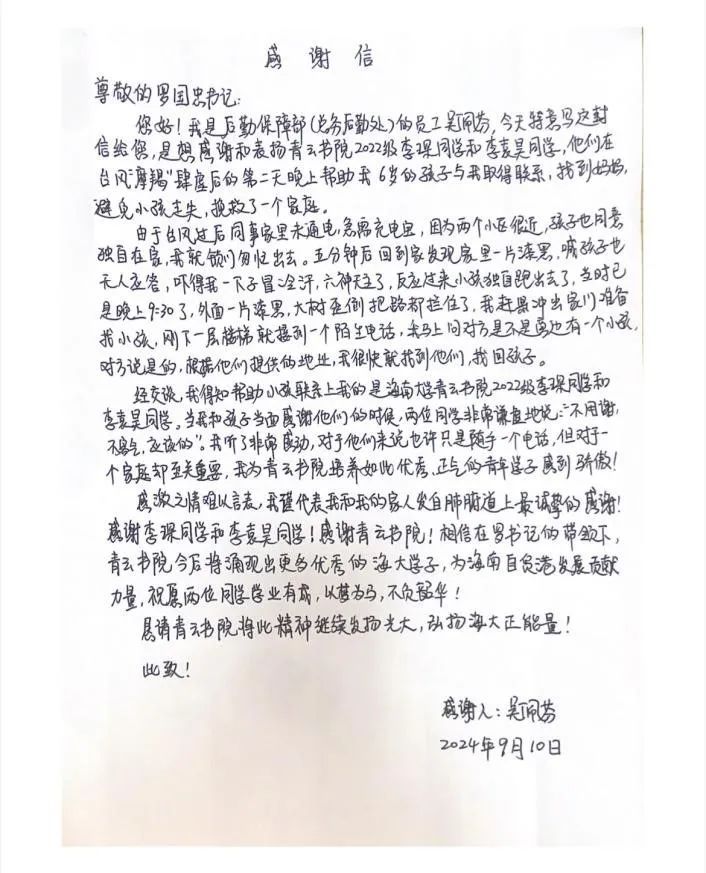 感谢信
尊敬的罗国忠书记:
您好!我是后勤保障部(总务后勤处)的员工吴佩芬,今天特意写这封
信给您,是想感谢和表扬青云书院2022级李琛同学和李袁昊同学,他们在
台风“摩羯”肆虐后的第二天晚上帮助我6岁的孩子与我取得联系,找到妈妈,
避免小孩走失,挽救了一个家庭。
由于台风过后同事家里未通电,急需充电宝,因为两个小区很近,孩子也同意
独自在家,我就锁门匆忙出去。五分钟后回到家发现家里一片漆黑,喊孩子也
无人应答,吓得我一下子冒冷汗,六神无主了,反应过来小孩独自跑出去了,当时已
是晚上9:30了,外面一片漆黑,大树歪倒把路都拦住了,我赶紧冲出家门准备
找小孩,刚下一层楼梯就接到一个陌生电话,我马上问对方是不是旁边有一个小孩,
对方说是的,根据他们提供的地址,我很快就找到他们,找回孩子。
经交谈,我得知帮助小孩联系上我的是海南大学青云书院2022级李琛同学和
李袁昊同学。当我和孩子当面感谢他们的时候,两位同学非常谦虚地说:“不用谢,
不客气,应该的”。我听了非常感动,对于他们来说也许只是随手一个电话,但对于一
个家庭却至关重要,我为青云书院培养如此优秀、正气的青年学子感到骄傲!
感激之情难以言表,我谨代表我和我的家人发自肺腑道上最诚挚的感谢!
感谢李琛同学和李袁昊同学!感谢青云书院!相信在罗书记的带领下,
青云书院今后将涌现出更多优秀的海大学子,为海南自贸港发展贡献
力量,祝愿两位同学学业有成,以梦为马,不负韶华!
恳请青云书院将此精神继续发扬光大,弘扬海大正能量!
此致!
感谢人:吴佩芬
2024年9月10日